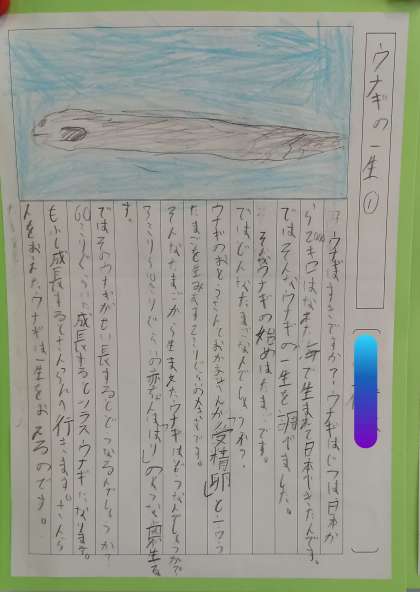 ウナギの一生①
ウナギはすきですか?ウナギはじつは日本か
ら2000キロはなれた海で生まれて日本できたんです。
ではそんなウナギの一生を調べました。
そんなウナギの始めはたまごです。
ではどんなたまごなんでしょうか?
ウナギのおとうさんとおかあさんが「受精卵」という
たまごを生みます。ぐらいの大きさです。
そんなたまごから生まれたウナギはどうなんでしょうか?
ミリぐらいの赤ちゃんは「はり」のような歯が生え
す。
ではそのウナギがせい長するとどうなるんでしょうか?
60ミリぐらいに成長するとシラスウナギになります。
もう少し成長するとさんらんへ行きます。さんら
んをおえたウナギは一生をおえるのです。